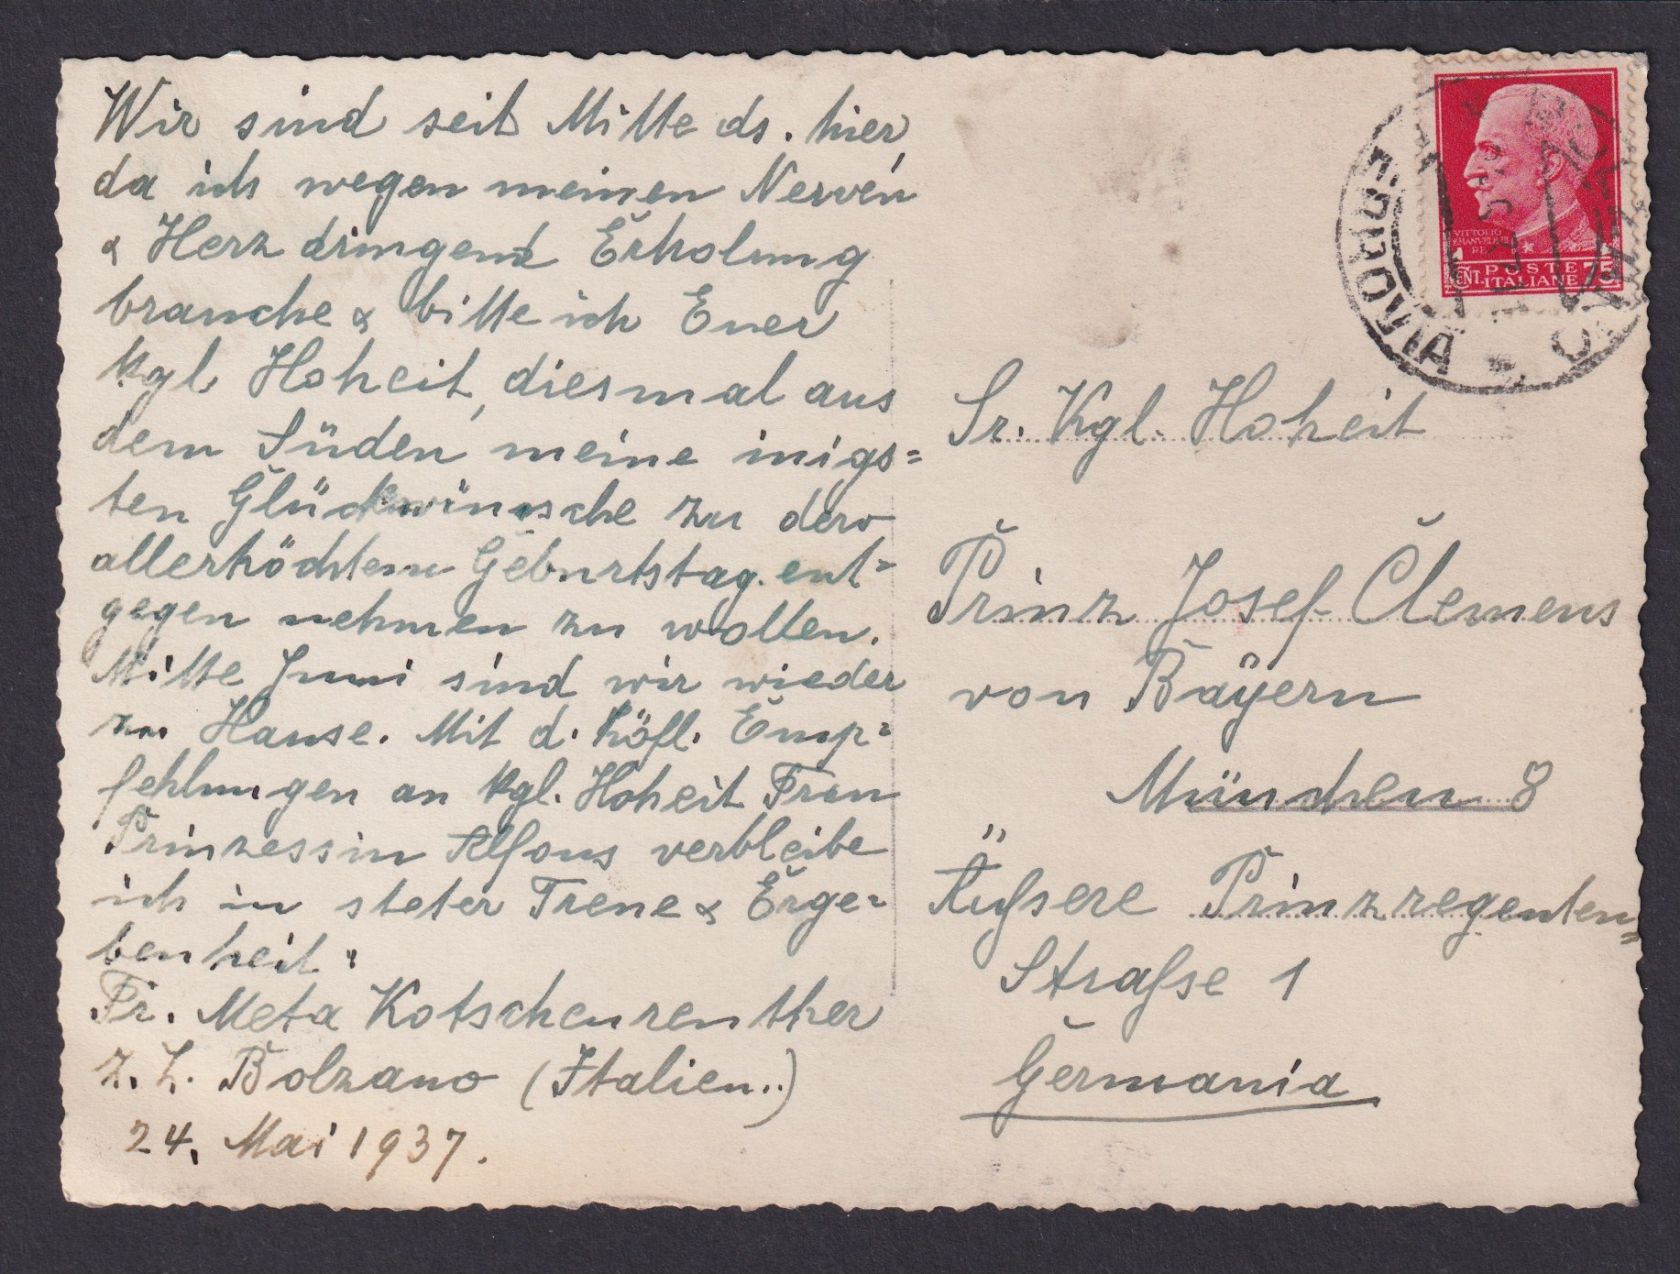 Wir sind seit Mitte ds. hier,
da ich wegen meinen Nerven
& Herz dringend Erholung
brauche & bitte ich Euer
Kgl. Hoheit, diesmal aus
dem Süden meine inigs=
ten Glückwünsche zu dero
allerhöchtem Geburtstag ent=
gegen nehmen zu wollen.
Mitte Juni sind wir wieder
zu Hause. Mit d. höfl. Emp=
fehlungen an kgl. Hoheit Frau
Prinzessin Alfons verbleibe
ich in steter Treue & Erge=
benheit:
Fr. Meta Kotschenreuther
z. Z. Bolzano (Italien..)
24. Mai 1937.
VITTORIO
EMANUELE III
RE
CENT. POSTE 75
ITALIANE
FERROVIA
Sr. Kgl. Hoheit
Prinz Josef-Clemens
von Bayern
München 8
Äußere Prinzregenten=
Straße 1
Germania